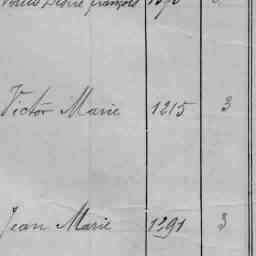 Désiré françois
Victor Marie 1215 3
Jean Marie 1291 3